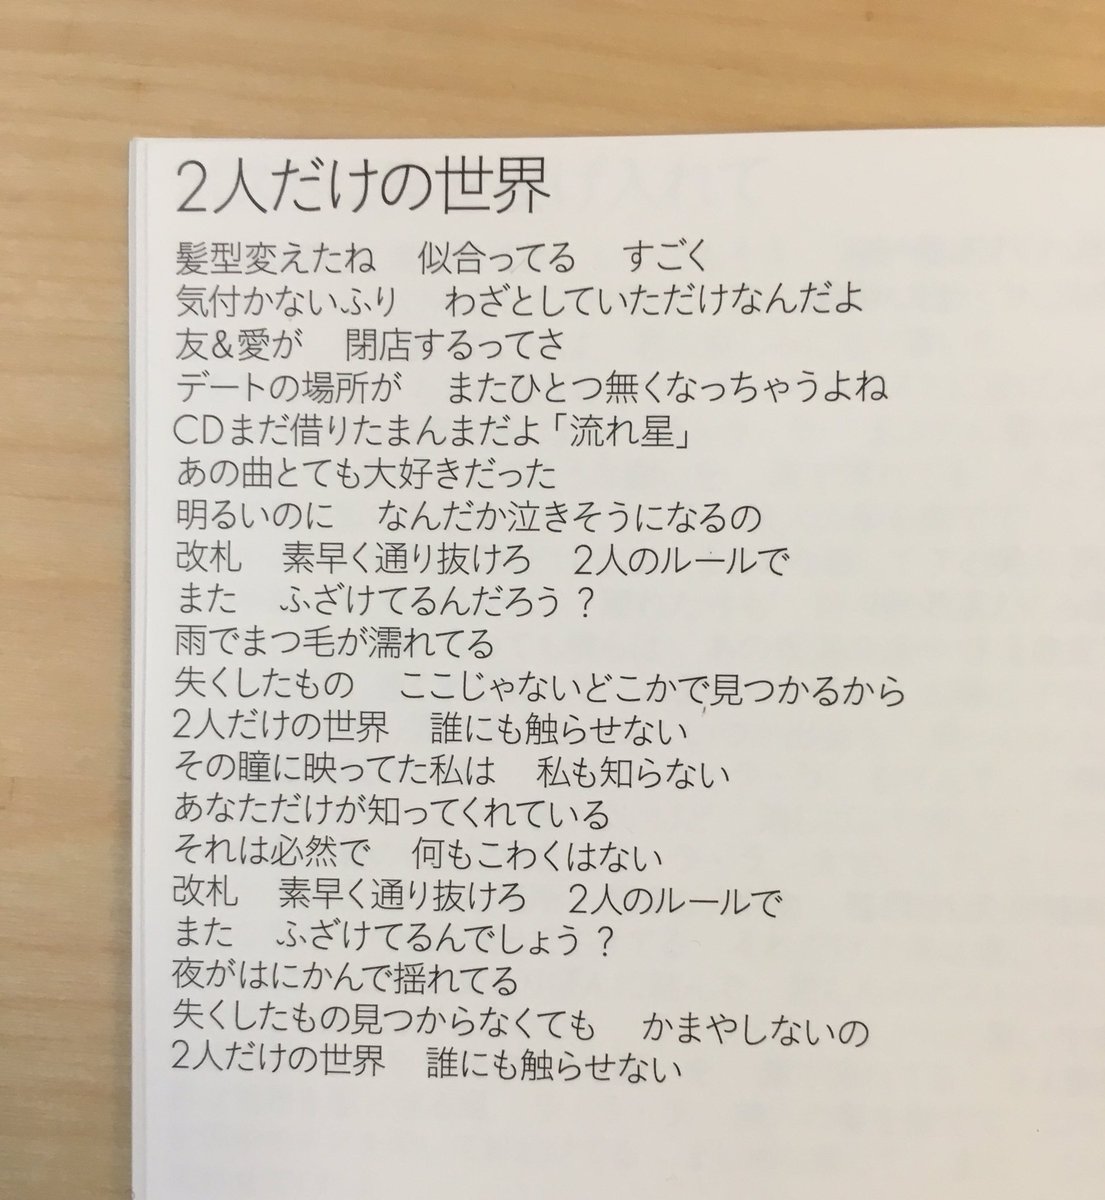 2人だけの世界
髪型変えたね　似合ってる　すごく
気付かないふり　わざとしていただけなんだよ
友&愛が　閉店するってさ
デートの場所が　またひとつ無くなっちゃうよね
CDまだ借りたまんまだよ「流れ星」
あの曲とても大好きだった
明るいのに　なんだか泣きそうになるの
改札　素早く通り抜けろ　2人のルールで
また　ふざけてるんだろう？
雨でまつ毛が濡れてる
失くしたもの　ここじゃないどこかで見つかるから
2人だけの世界　誰にも触らせない
その瞳に映ってた私は　私も知らない
あなただけが知ってくれている
それは必然で　何もこわくはない
改札　素早く通り抜けろ　2人のルールで
また　ふざけてるんでしょう？
夜がはにかんで揺れてる
失くしたもの見つからなくても　かまやしないの
2人だけの世界　誰にも触らせない